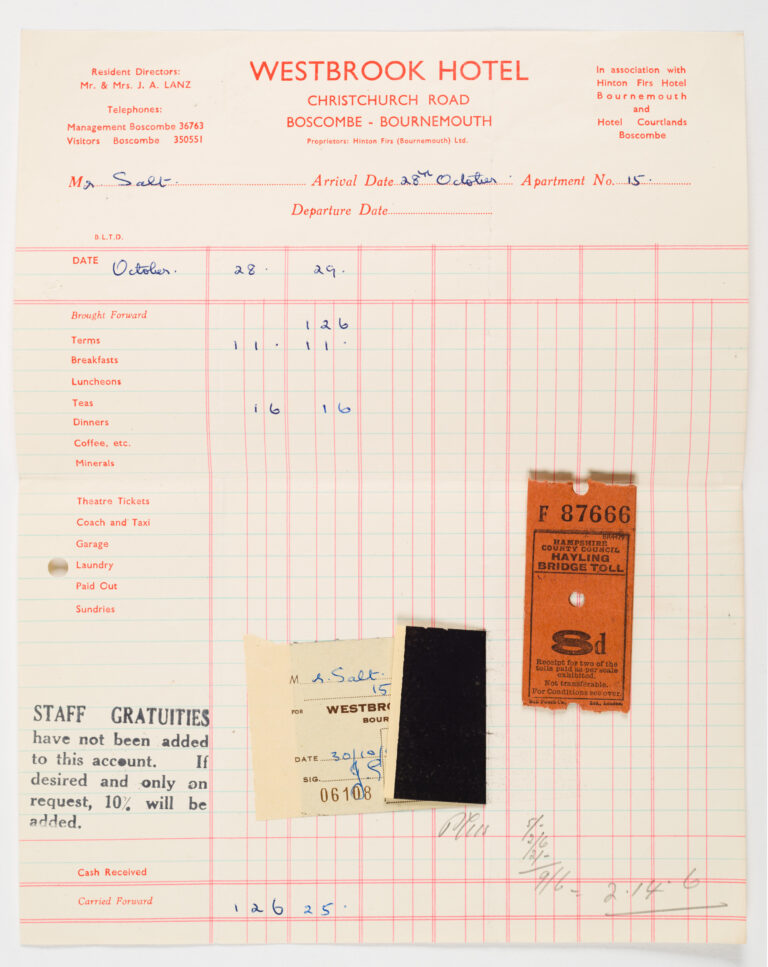 Resident Directors:
Mr. & Mrs. J. A. LANZ
Telephones:
Management Boscombe 36763
Visitors Boscombe 350551
WESTBROOK HOTEL
CHRISTCHURCH ROAD
BOSCOMBE - BOURNEMOUTH
Proprietors: Hinton Firs (Bournemouth) Ltd.
In association with
Hinton Firs Hotel
Bournemouth
and
Hotel Courtlands
Boscombe
Mr Salt. Arrival Date 28th October Apartment No. 15.
Departure Date
B.L.T.D.
DATE October. 28. 29.
Brought Forward 1 2 6
Terms 1 1 . 1 1 .
Breakfasts
Luncheons
Teas 1 6 1 6
Dinners
Coffee, etc.
Minerals
Theatre Tickets
Coach and Taxi
Garage
Laundry
Paid Out
Sundries
F 87666
HAMPSHIRE
COUNTY COUNCIL
HAYLING
BRIDGE TOLL
8d
Receipt for two of the
tolls paid as per scale
exhibited.
Not transferable.
For Conditions see over.
Bell Punch Co. Ltd., London.
Mr. Salt.
15
FOR WESTBR
BOUR
DATE 30/10/
SIG.
06108
STAFF GRATUITIES
have not been added
to this account. If
desired and only on
request, 10% will be
added.
5/-
2/6
2/-
9/6 = 2.14.6
Cash Received
Carried Forward 1 2 6 2 5 .